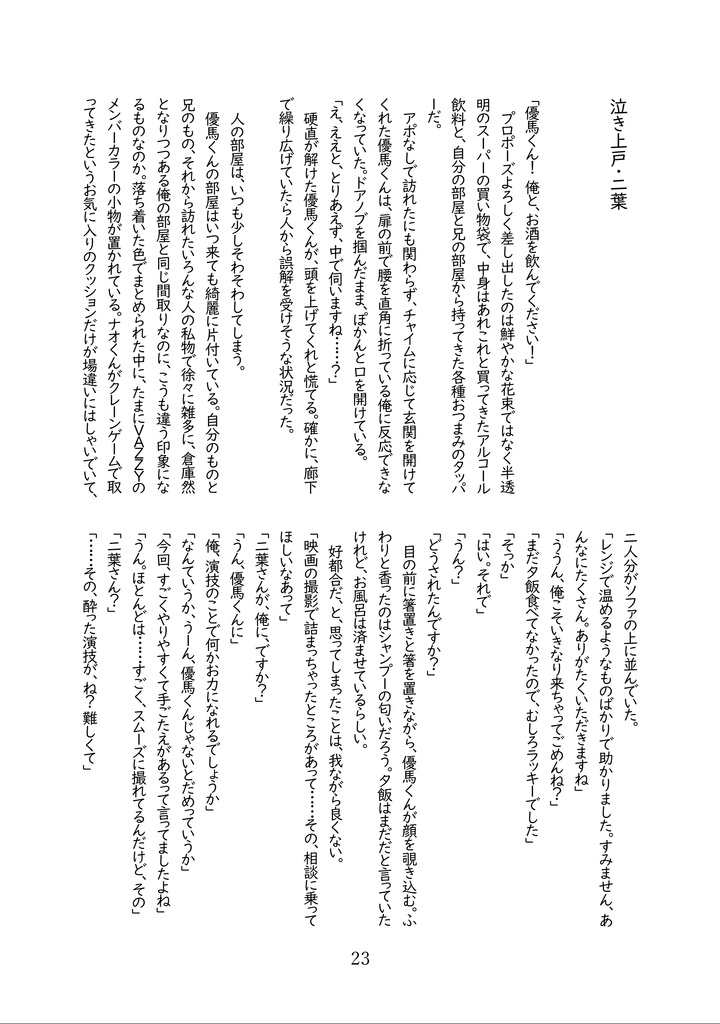 泣き上戸・二葉
「優馬くん！　俺と、お酒を飲んでください！」
　プロポーズよろしく差し出したのは鮮やかな花束ではなく半透
明のスーパーの買い物袋で、中身はあれこれと買ってきたアルコール
飲料と、自分の部屋と兄の部屋から持ってきた各種おつまみのタッパ
ーだ。
　アポなしで訪れたにも関わらず、チャイムに応じて玄関を開けて
くれた優馬くんは、扉の前で腰を直角に折っている俺に反応できな
くなっていた。ドアノブを掴んだまま、ぽかんと口を開けている。
「え、ええと、とりあえず、中で伺いますね……？」
　硬直が解けた優馬くんが、頭を上げてくれと慌てる。確かに、廊下
で繰り広げていたら人から誤解を受けそうな状況だった。
　人の部屋は、いつも少しそわそわしてしまう。
　優馬くんの部屋はいつ来ても綺麗に片付いている。自分のものと
兄のもの、それから訪れたいろんな人の私物で徐々に雑多に、倉庫然
となりつつある俺の部屋と同じ間取りなのに、こうも違う印象にな
るものなのか。落ち着いた色でまとめられた中に、たまにＶＡＺＺＹの
メンバーカラーの小物が置かれている。ナオくんがクレーンゲームで取
ってきたというお気に入りのクッションだけが場違いにはしゃいでいて、
二人分がソファの上に並んでいた。
「レンジで温めるようなものばかりで助かりました。すみません、あ
んなにたくさん。ありがたくいただきますね」
「ううん、俺こそいきなり来ちゃってごめんね？」
「まだ夕飯食べてなかったので、むしろラッキーでした」
「そっか」
「はい。それで」
「うん？」
「どうされたんですか？」
　目の前に箸置きと箸を置きながら、優馬くんが顔を覗き込む。ふ
わりと香ったのはシャンプーの匂いだろう。夕飯はまだだと言っていた
けれど、お風呂は済ませているらしい。
　好都合だ、と、思ってしまったことは、我ながら良くない。
「映画の撮影で詰まっちゃったところがあって……その、相談に乗って
ほしいなあって」
「二葉さんが、俺に、ですか？」
「うん、優馬くんに」
「俺、演技のことで何かお力になれるでしょうか」
「なんていうか、うーん、優馬くんじゃないとだめっていうか」
「今回、すごくやりやすくて手ごたえがあるって言ってましたよね」
「うん。ほとんどは……すごく、スムーズに撮れてるんだけど、その」
「二葉さん？」
「……その、酔った演技が、ね？　難しくて」
23